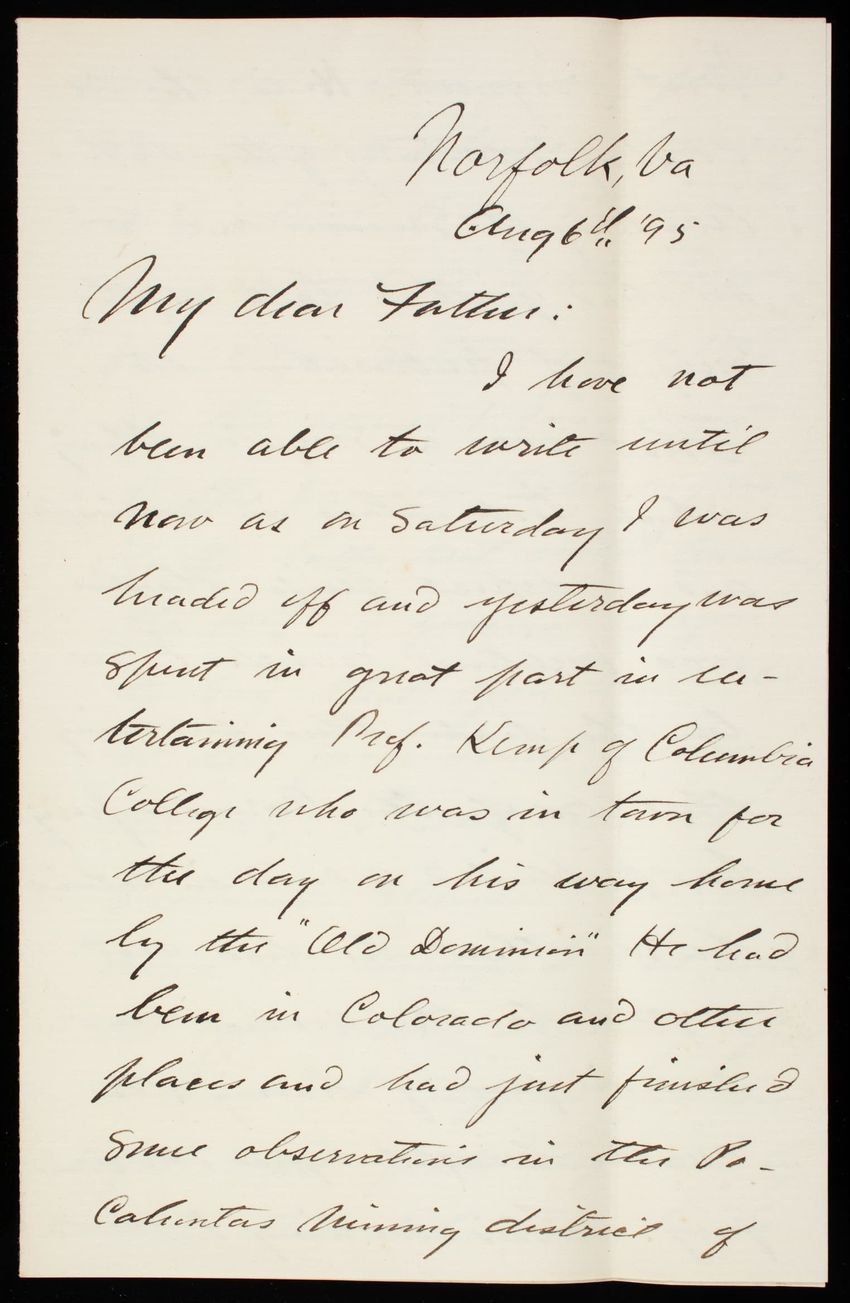 Norfolk, Va
Aug 6th '95
My dear Father:
I have not
been able to write until
now as on Saturday I was
headed off and yesterday was
spent in great part in en-
tertaining Prof. Kemp of Columbia
College who was in town for
the day on his way home
by the "Old Dominion" He had
been in Colorado and other
places and had just finished
some observations in the Po-
cahontas Mining district of